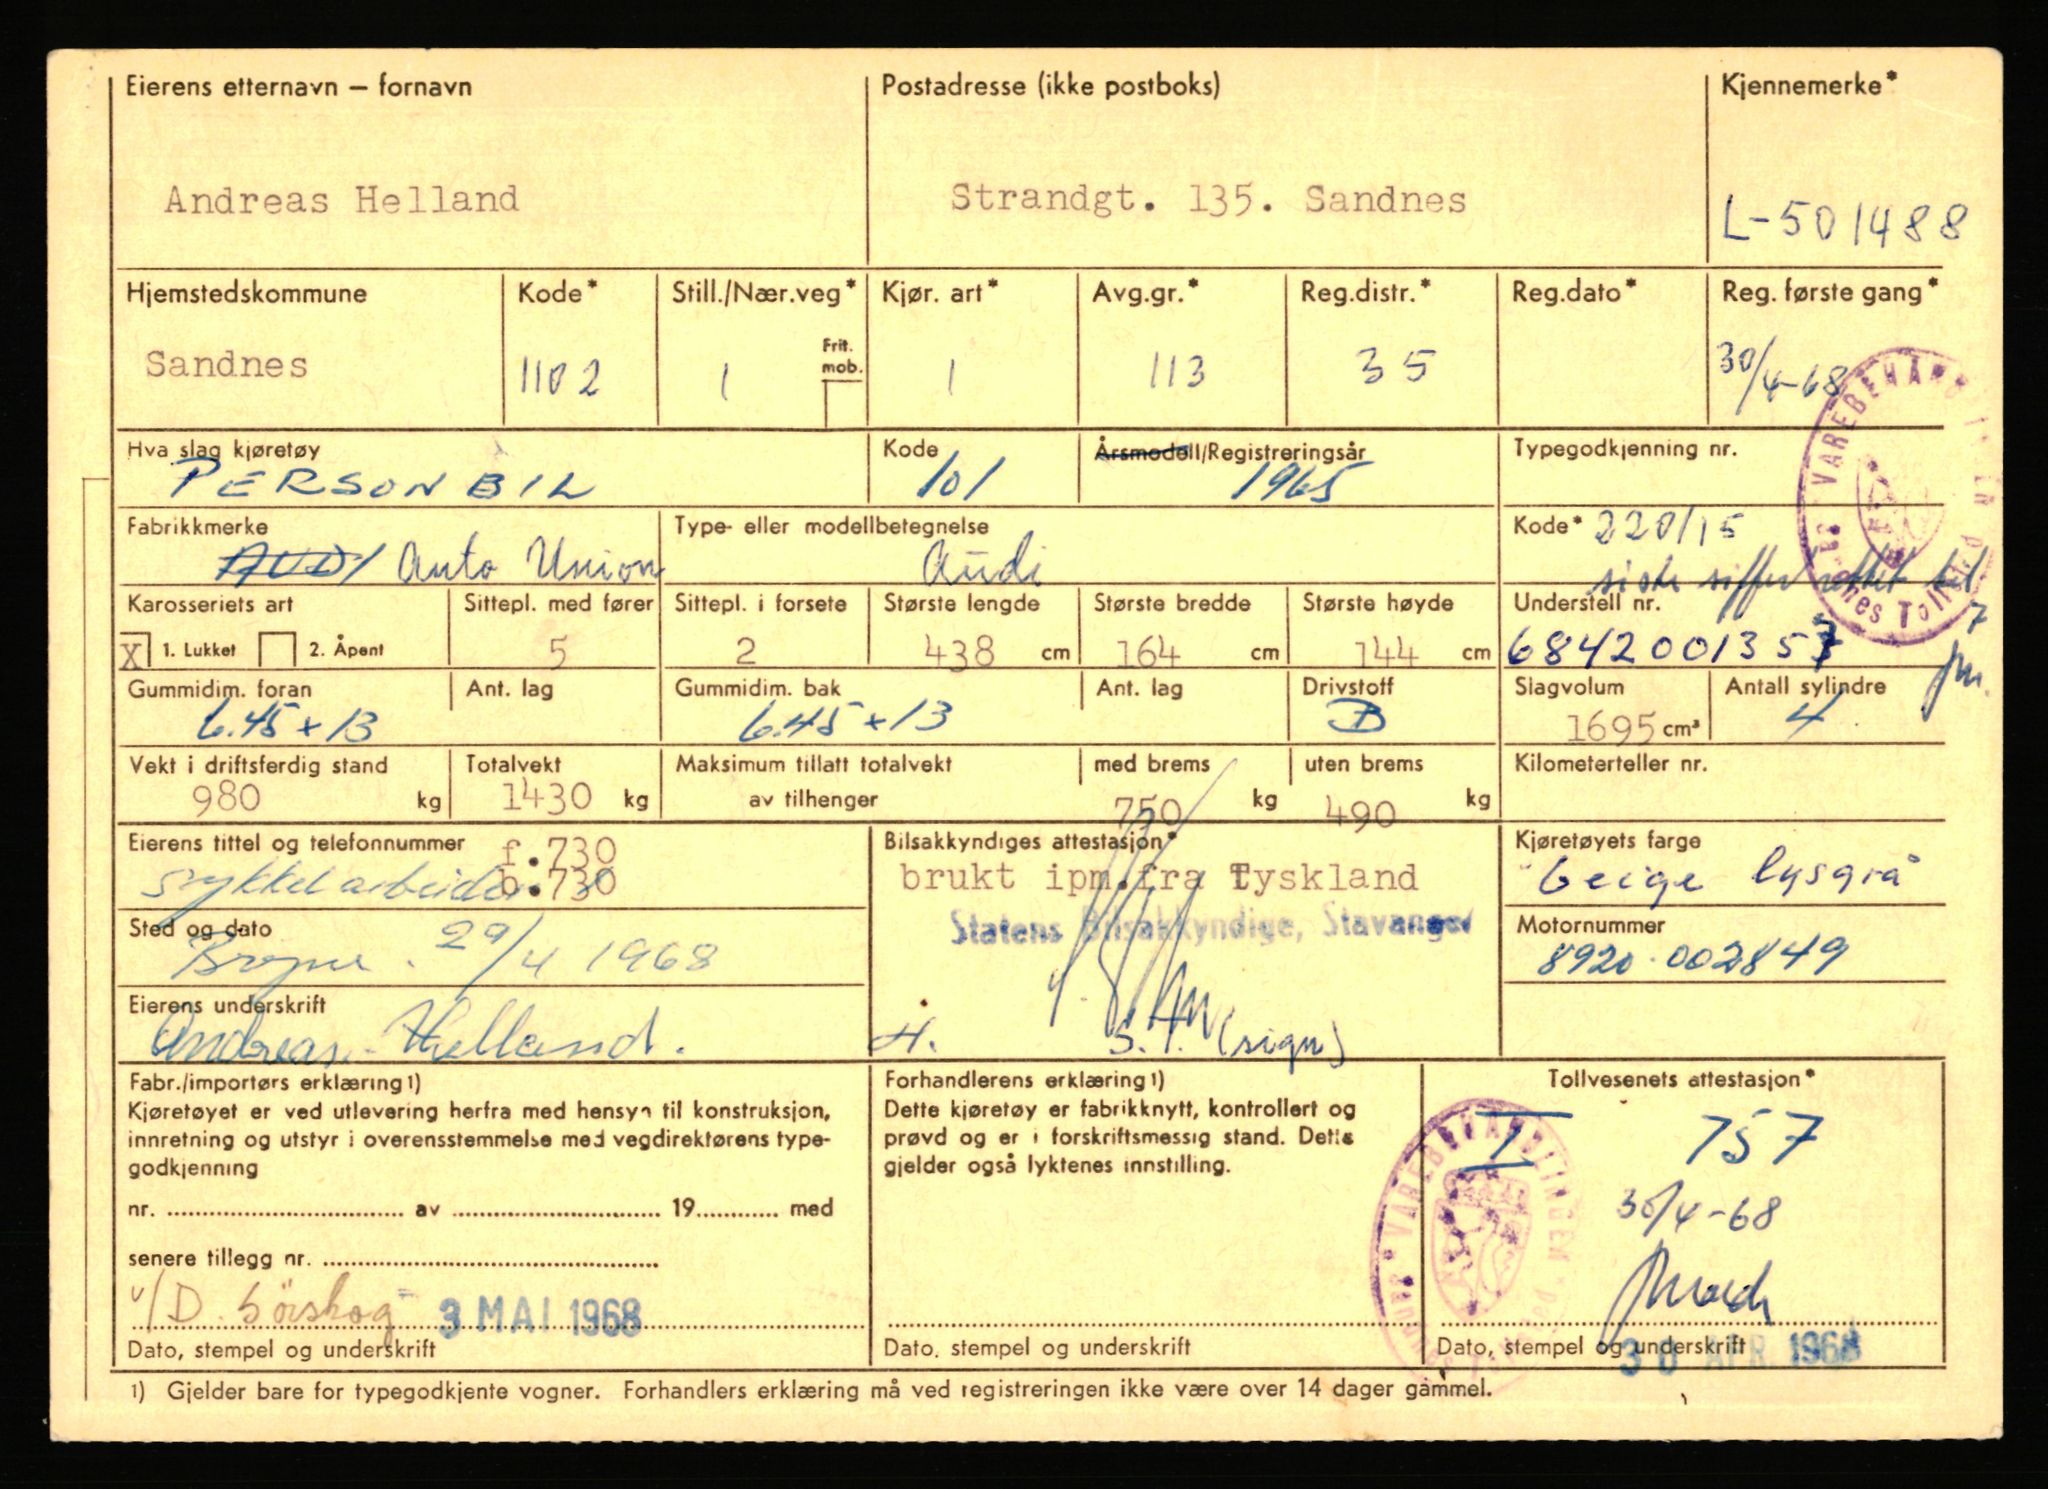 Eierens etternavn – fornavn
Postadresse (ikke postboks)
Kjennemerke*
Andreas Helland
Strandgt. 135. Sandnes
L-501488
Hjemstedskommune
Kode*
Still./Nær.veg*
Kjør. art*
Avg.gr.*
Reg.distr.*
Reg.dato*
Reg. første gang*
Sandnes
1102
1
Frit. mob.
1
113
35
30/4-68
Hva slag kjøretøy
Kode
Årsmodell/Registreringsår
Typegodkjenning nr.
PERSONBIL
101
1965
Fabrikkmerke
Type- eller modellbetegnelse
Kode* 220/15
AUDI Auto Union
Audi
siste siffer rettet til 7
Karosseriets art
Sittepl. med fører
Sittepl. i forsete
Største lengde
Største bredde
Største høyde
Understell nr.
X 1. Lukket 2. Åpent
5
2
438 cm
164 cm
144 cm
6842001357
Gummidim. foran
Ant. lag
Gummidim. bak
Ant. lag
Drivstoff
Slagvolum
Antall sylindre
6.45 x 13
6.45 x 13
B
1695 cm³
4
Vekt i driftsferdig stand
Totalvekt
Maksimum tillatt totalvekt
med brems
uten brems
Kilometerteller nr.
980 kg
1430 kg
av tilhenger
750 kg
490 kg
Eierens tittel og telefonnummer
f.730
Bilsakkyndiges attestasjon*
Kjøretøyets farge
sykkelarbeider
b.730
brukt ipm.fra Tyskland
beige lysgrå
Statens Bilsakkyndige, Stavanger
Sted og dato
Motornummer
Bryne. 29/4 1968
8920-002849
Eierens underskrift
Andreas Helland.
(sign)
Fabr./importørs erklæring 1)
Forhandlerens erklæring 1)
Tollvesenets attestasjon*
Kjøretøyet er ved utlevering herfra med hensyn til konstruksjon,
innretning og utstyr i overensstemmelse med vegdirektørens type-
godkjenning
Dette kjøretøy er fabrikknytt, kontrollert og
prøvd og er i forskriftsmessig stand. Dette
gjelder også lyktenes innstilling.
I 757
30/4-68
nr. .......... av .......... 19.......... med
senere tillegg nr. ..........
v/D. Sörskog
3 MAI 1968
30 APR. 1968
Dato, stempel og underskrift
Dato, stempel og underskrift
Dato, stempel og underskrift
1) Gjelder bare for typegodkjente vogner. Forhandlers erklæring må ved registreringen ikke være over 14 dager gammel.